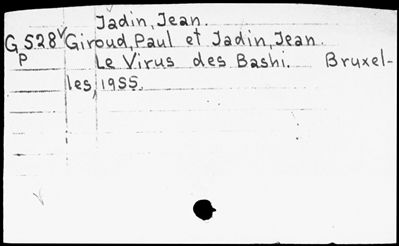 Jadin, Jean.
Gp528v Giroud, Paul et Jadin, Jean.
Le Virus des Bashi. Bruxel-
les, 1955.